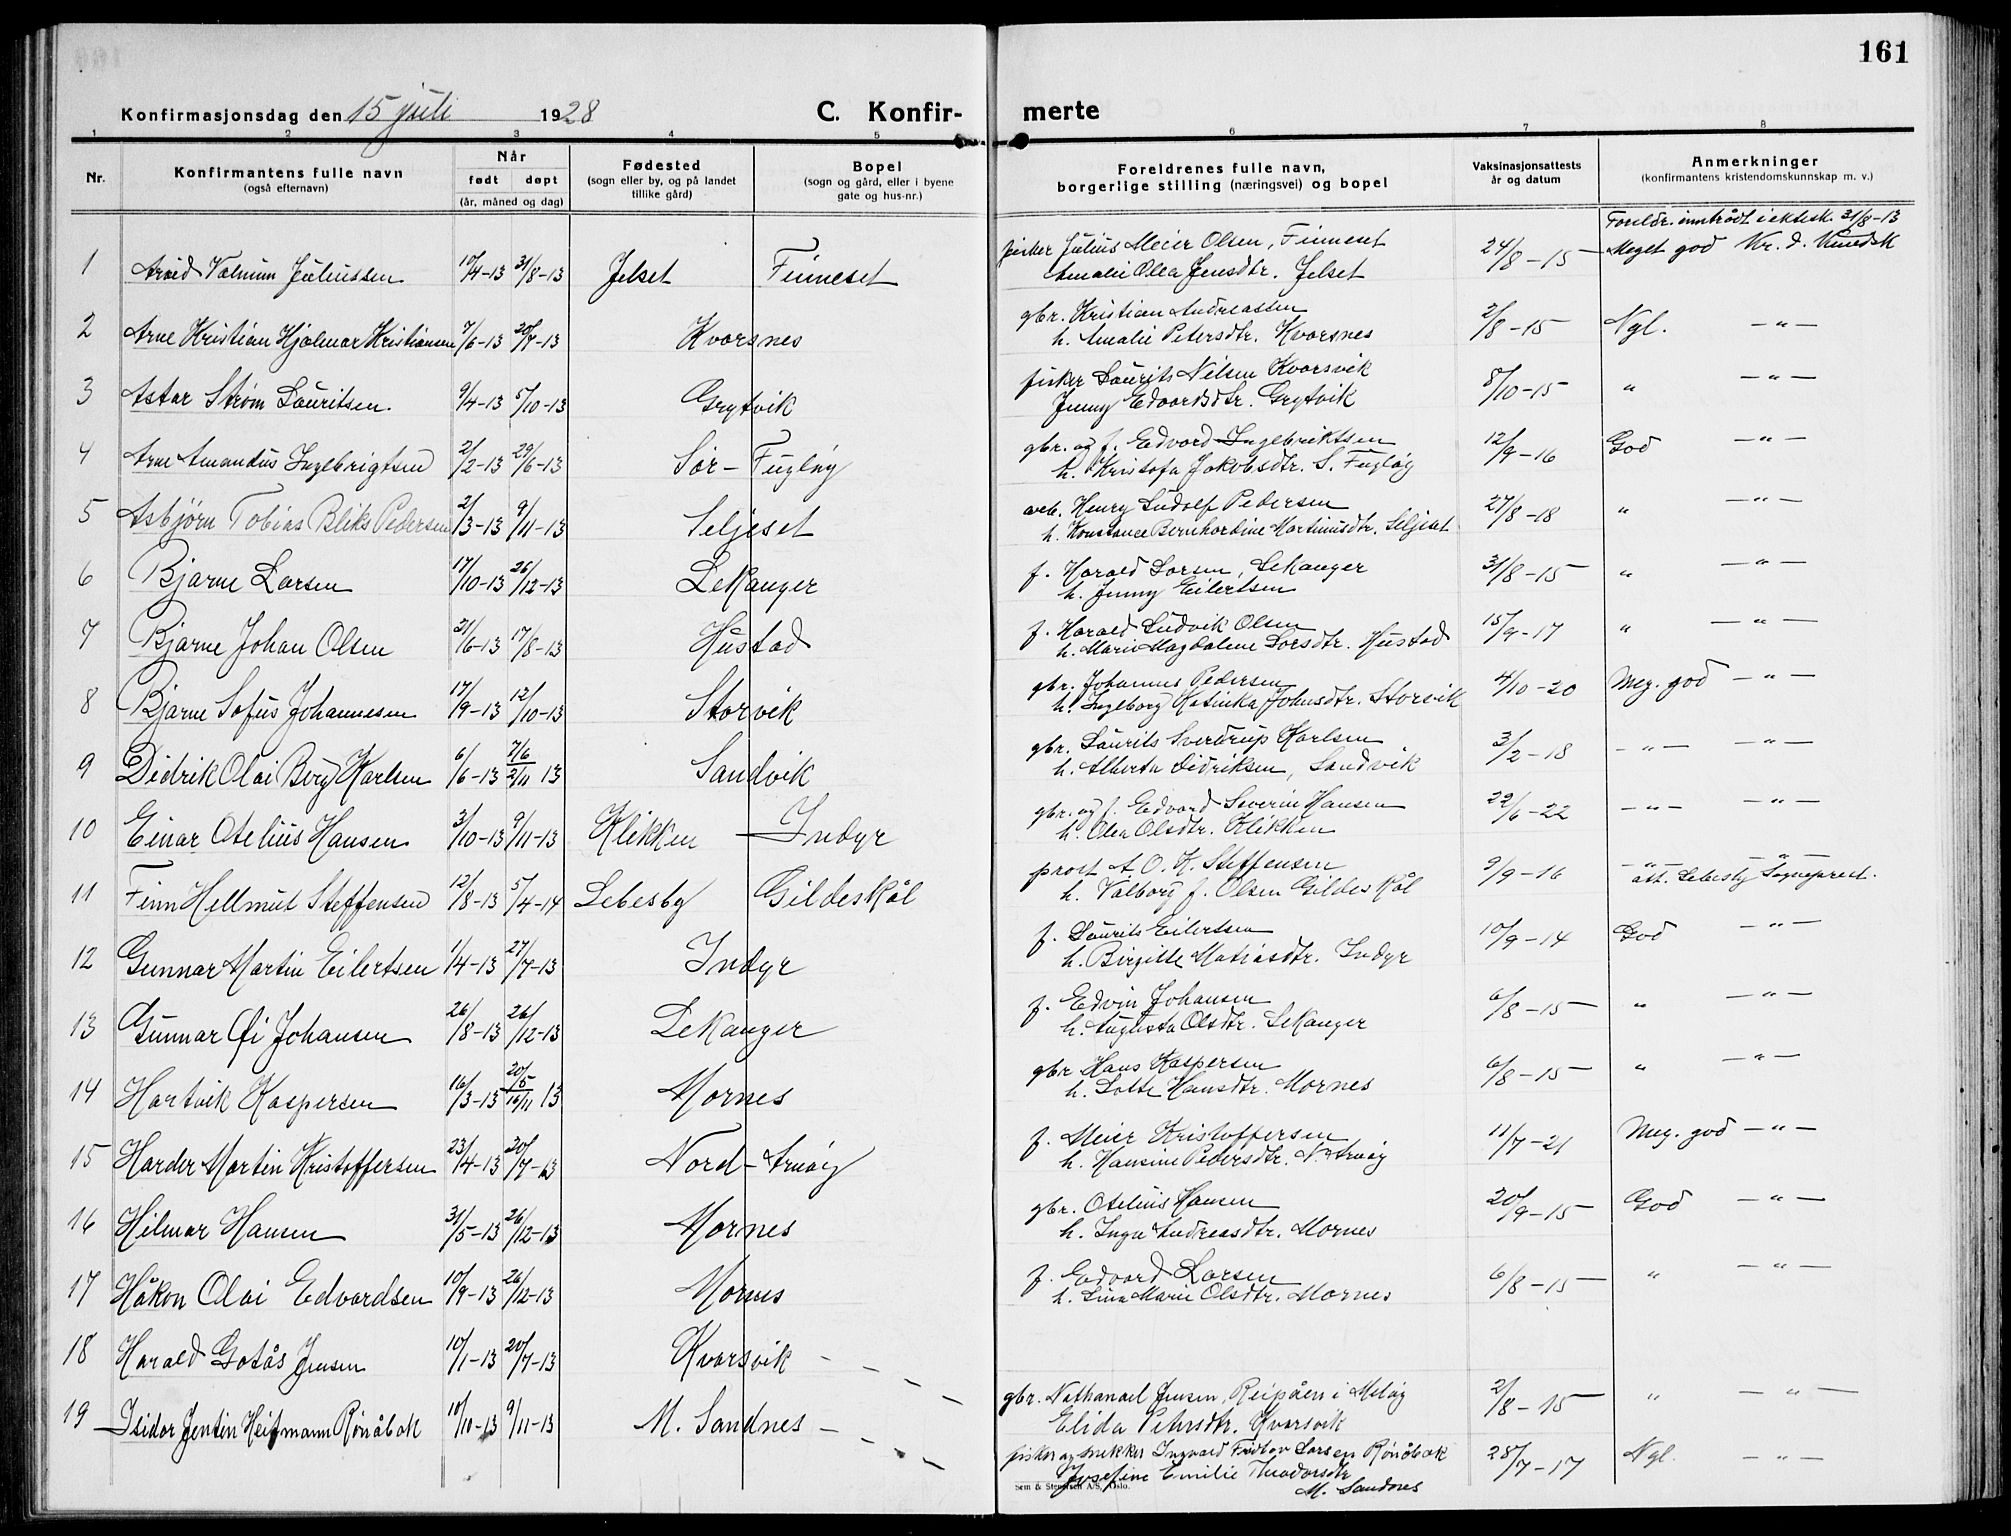 161
Konfirmasjonsdag den 15 juli 1928
C. Konfir-
merte
1 2 3 4 5 6 7 8
Nr.
Konfirmantens fulle navn
(også efternavn)
Når
født døpt
(år, måned og dag)
Fødested
(sogn eller by, og på landet
tillike gård)
Bopel
(sogn og gård, eller i byene
gate og hus-nr.)
Foreldrenes fulle navn,
borgerlige stilling (næringsvei) og bopel
Vaksinasjonsattests
år og datum
Anmerkninger
(konfirmantens kristendomskunnskap m. v.)
Foreldr. inntrådt i ektesk. 31/8-13
1 Arvid Valmun Juliussen 10/4-13 31/8-13 Jelset Finneset fisker Julius Meier Olsen, Finneset 24/8-15 Meget god Kr. d. kundsk
Amalie Olea Jensdtr. Jelset
2 Arne Kristian Hjalmar Kristiansen 7/6-13 20/7-13 Kvarsnes gbr. Kristian Andreassen 2/8-15 Ngl. —"—
h. Amalie Petersdtr. Kvarsnes
3 Astar Strøm Lauritsen 9/4-13 5/10-13 Grytvik fisker Laurits Nilsen Kvarsvik 8/10-15 " —"—
Jenny Edvardsdtr. Grytvik
4 Arne Amandus Ingebrigtsen 2/2-13 29/6-13 Sør-Fugløy gbr. og f. Edvard Ingebriktsen 12/9-16 God —"—
h. Kristofa Jakobsdtr. S. Fugløy
5 Asbjørn Tobias Bliks Pedersen 2/3-13 9/11-13 Seljeset arb. Henry Ludolf Pedersen 27/8-18 " —"—
h. Konstance Bernhardine Martinusdtr. Seljeset
6 Bjarne Larsen 17/10-13 26/12-13 Lekanger f. Harald Larsen, Lekanger 31/8-15 " —"—
h. Jenny Eilertsen
7 Bjarne Johan Olsen 21/6-13 17/8-13 Hustad f. Harald Ludvik Olsen 15/9-17 " —"—
h. Marie Magdalene Larsdtr. Hustad
8 Bjarne Sofus Johannesen 17/9-13 12/10-13 Storvik gbr. Johannes Pedersen 4/10-20 Meg. god —"—
h. Ingeborg Katinka Johnsdtr. Storvik
9 Didrik Olai Berg Karlsen 6/6-13 7/6 2/11 13 Sandvik gbr. Laurits Sverdrup Karlsen 3/2-18 —"— —"—
h. Alberta Didriksen, Sandvik
10 Einar Otelius Hansen 3/10-13 9/11-13 Klikken Indyr gbr. og f. Edvard Severin Hansen 22/6-22 —"— —"—
h. Olea Olsdtr. Klikken
11 Finn Hellmut Steffensen 12/8-13 5/4-14 Lebesby Gildeskål prost A. O. K. Steffensen 9/9-16 —"— —"—
h. Valborg f. Olsen Gildeskål att. Lebesby Sogneprest.
12 Gunnar Martin Eilertsen 1/4-13 27/7-13 Indyr f. Laurits Eilertsen 10/9-14 God —"—
h. Birgitte Matiasdtr. Indyr
13 Gunnar Øi Johansen 26/8-13 26/12-13 Lekanger f. Edvin Johansen 6/8-15 " —"—
h. Augusta Olsdtr. Lekanger
14 Hartvik Kaspersen 16/3-13 20/5 16/11 13 Mornes gbr. Hans Kaspersen 6/8-15 " —"—
h. Lotte Hansdtr. Mornes
15 Harder Martin Kristoffersen 23/4-13 20/7-13 Nord-Arnøy f. Meier Kristoffersen 11/7-21 Meg. god —"—
h. Hansine Pedersdtr. N. Arnøy
16 Hilmar Hansen 31/5-13 26/12-13 Mornes gbr. Otelius Hansen 20/9-15 God —"—
h. Inga Andreasdtr. Mornes
17 Håkon Olai Edvardsen 10/9-13 26/12-13 Mornes f. Edvard Larsen 6/8-15 " —"—
h. Lina Marie Olsdtr. Mornes
18 Harald Gotås Jensen 10/1-13 20/7-13 Kvarsvik gbr. Nathanael Jensen, Reipåen i Meløy 2/8-15 " —"—
Elida Petersdtr. Kvarsvik
19 Isidor Jentin Heitmann Rønåbak 10/10-13 9/11-13 M. Sandnes fisker og snekker Ingvald Fridtov Larsen Rønåbak 28/7-17 Ngl. —"—
Josefine Emilie Theodorsdtr
M. Sandnes
Sem & Stenersen A/S, Oslo.